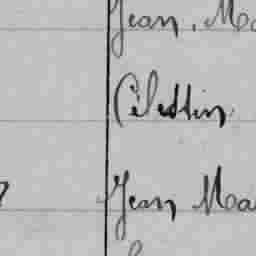 Jean, Ma
Célestin
Jean Ma